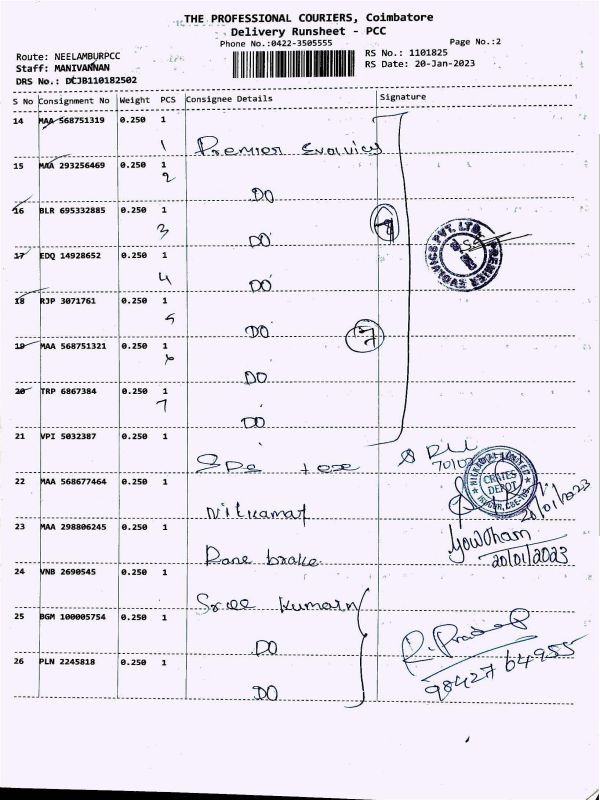 THE PROFESSIONAL COURIERS, Coimbatore
Delivery Runsheet - PCC
Phone No.:0422-3505555
Page No.:2
Route: NEELAMBURPCC
Staff: MANIVANNAN
DRS No.: DCJB110182502
RS No.: 1101825
RS Date: 20-Jan-2023
S No Consignment No Weight PCS Consignee Details Signature
14 MAA 568751319 0.250 1
1 Premier Evolvics
15 MAA 293256469 0.250 1
2 DO
16 BLR 695332885 0.250 1
3 DO
17 EDQ 14928652 0.250 1
4 DO
18 RJP 3071761 0.250 1
5 DO
19 MAA 568751321 0.250 1
6 DO
20 TRP 6867384 0.250 1
7 DO
PREMIER EVOLVICS PVT. LTD.
21 VPI 5032387 0.250 1
22 MAA 568677464 0.250 1
Nilkamal
NILKAMAL LIMITED
CRATES DEPOT
20/01/2023
23 MAA 298806245 0.250 1
Rane brake
Gowtham
20/01/2023
24 VNB 2690545 0.250 1
Sree Kumarn
25 BGM 100005754 0.250 1
DO
R. Pradeep
98427 64955
26 PLN 2245818 0.250 1
DO